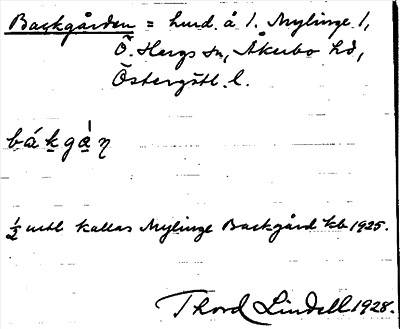 Backgården = hmd. å 1. Mylinge 1,
Ö. Hargs sn, Åkerbo hd,
Östergötl. l.
bákgà̱ṇ
½ mtl kallas Mylinge Backgård kb 1925.
Thord Lindell 1928.